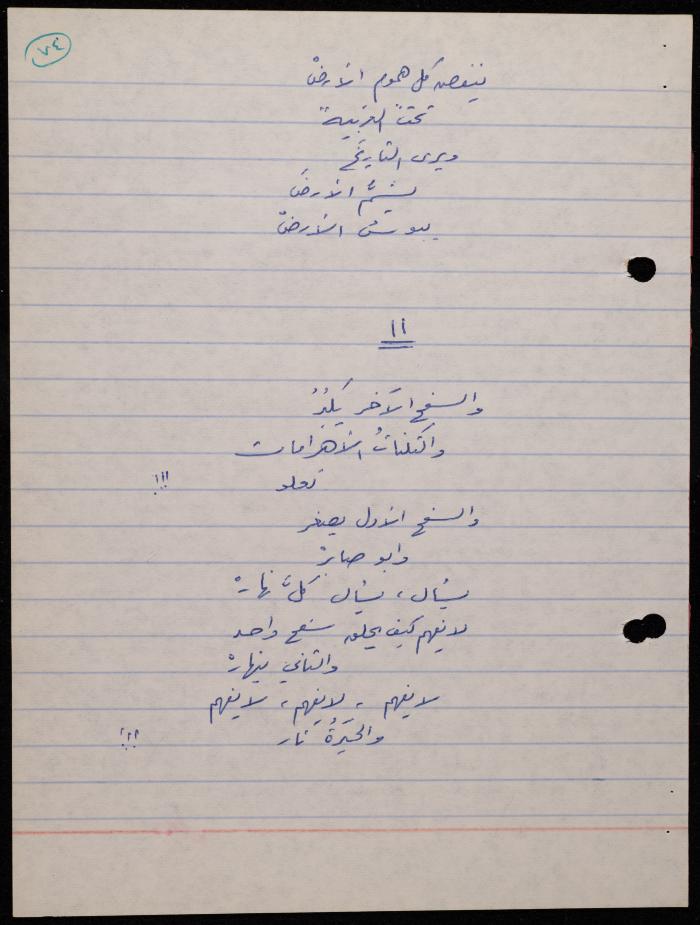 ٧٤
ينفض كل هموم الأرضْ
تحتَ
ويرى التاريخَ
يشمُّ الأرضَ
يبوسُ الأرضْ
١١
والسفح الآخر يَكْبُرُ
والثكناتُ الأهرامات
تعلو !!!
والسفح الأول يصغر
وابو صابرْ
يسأل، يسأل كلَّ نهارْ
لا يفهم كيف يعلو سفح واحد
والثاني ينهارْ
لا يفهم، لا يفهم، لا يفهم
والحَيْرَةُ نار !!!